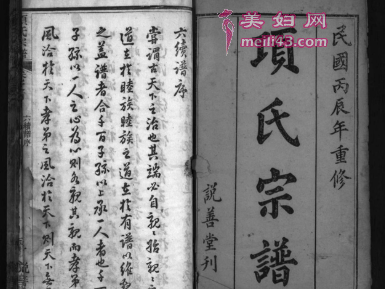 美妇网
www.meili43.com
民國丙辰年重修
項氏宗譜
說善堂刊
六續譜序
嘗謂古天下之治也其端必自親
道立於睦族睦族之道立於有譜以維
之蓋譜者合千百子孫以上承一人者也千
子孫以一人之心為心則各親其親而孝弟
風洽於天下孝弟之風洽於天下則天下